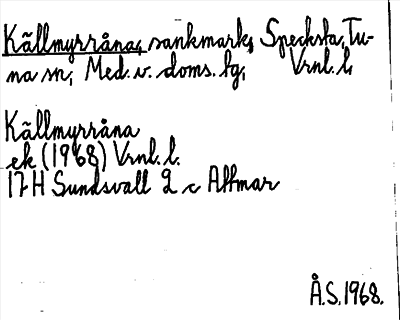 Källmyrråna, sankmark, Specksta, Tu-
na sn, Med. v. doms. tg, Vrnl. l,
Källmyrråna
ek (1968) Vrnl. l.
17H Sundsvall 2 c Allmar
Å.S. 1968.